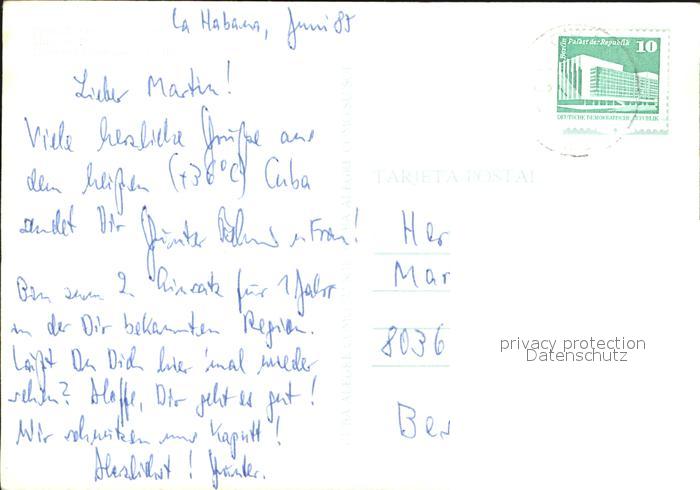 La Habana, Juni 87
Lieber Martin!
Viele herzliche Grüße aus
dem heißen (+36°C) Cuba
sendet Dir Günter u Frau!
Bin zum 2. Einsatz für 1 Jahr
in der Dir bekannten Region.
Läßt Du Dich hier 'mal wieder
sehen? Hoffe, Dir geht es gut!
Wir schwitzen uns kaputt!
Herzlichst! Günter.
Berlin Palast der Republik 10
DEUTSCHE DEMOKRATISCHE REPUBLIK
TARJETA POSTAL
Her
Mar
8036
Ber
privacy protection
Datenschutz